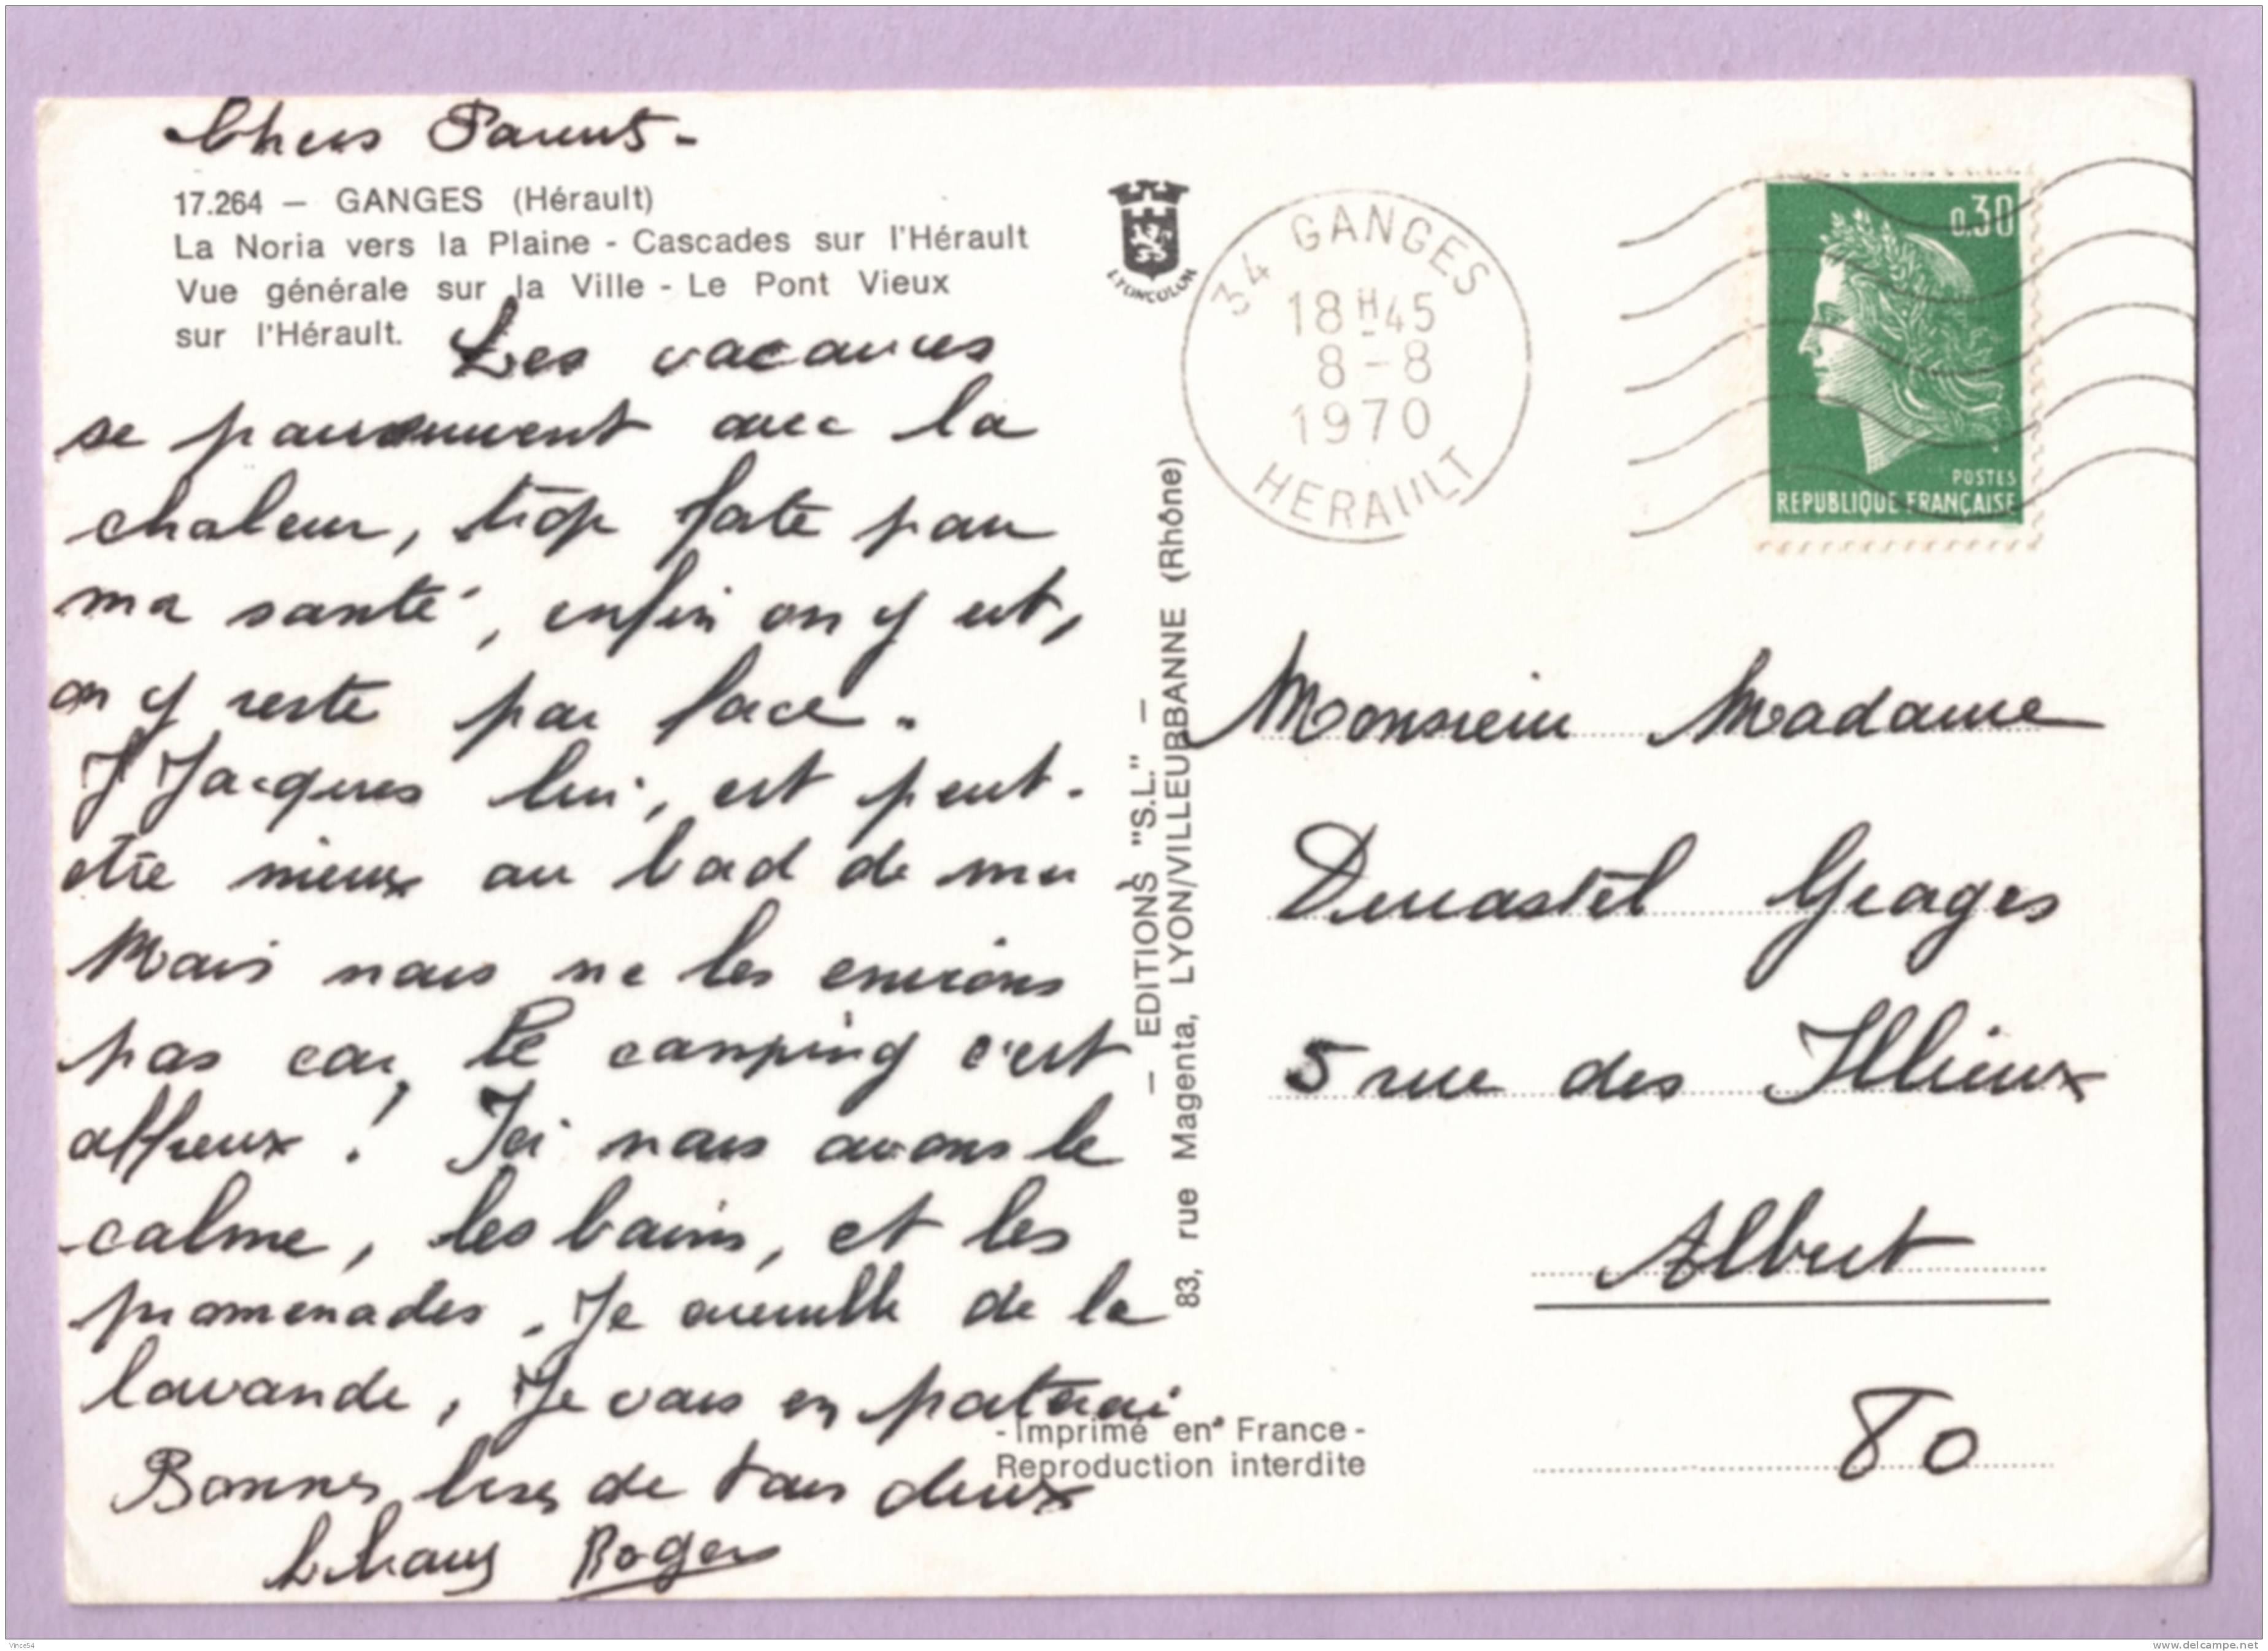 Chers Parents -
17.264 — GANGES (Hérault)
La Noria vers la Plaine - Cascades sur l'Hérault
Vue générale sur la Ville - Le Pont Vieux
sur l'Hérault.
Les vacances
se poursuivent avec la
chaleur, trop forte pour
ma santé, enfin on y est,
on y reste par force.
J Jacques lui, est peut-
etre mieux au bord de mer
Mais nous ne les envions
pas car, le camping c'est
affreux ! Ici nous avons le
calme, les bains, et les
promenades. Je cueille de la
lavande, Je vous en porterai
Bonnes bises de tous deux
Roger
LYONCOLOR
— EDITIONS "S.L." —
83, rue Magenta, LYON/VILLEURBANNE (Rhône)
- Imprimé en France -
Reproduction interdite
34 GANGES
18H45
8-8
1970
HERAULT
0,30
POSTES
REPUBLIQUE FRANÇAISE
Monsieur Madame
Ducastel Georges
5 rue des Illieux
Albert
80
Vince54
www.delcampe.net